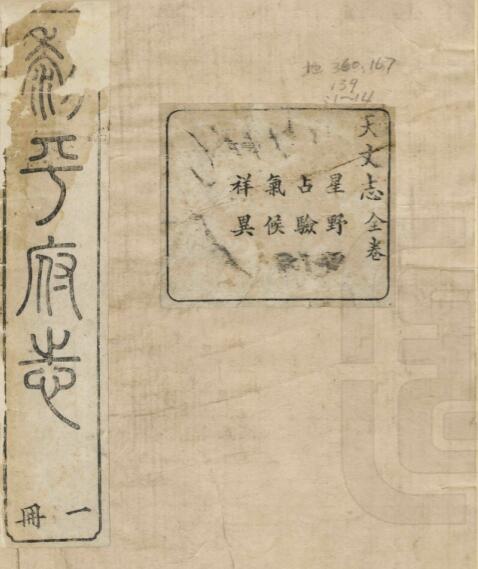 黎平府志
一冊
地 360.167
139
:1~14
天文志全卷
星野
占驗
氣候
祥異